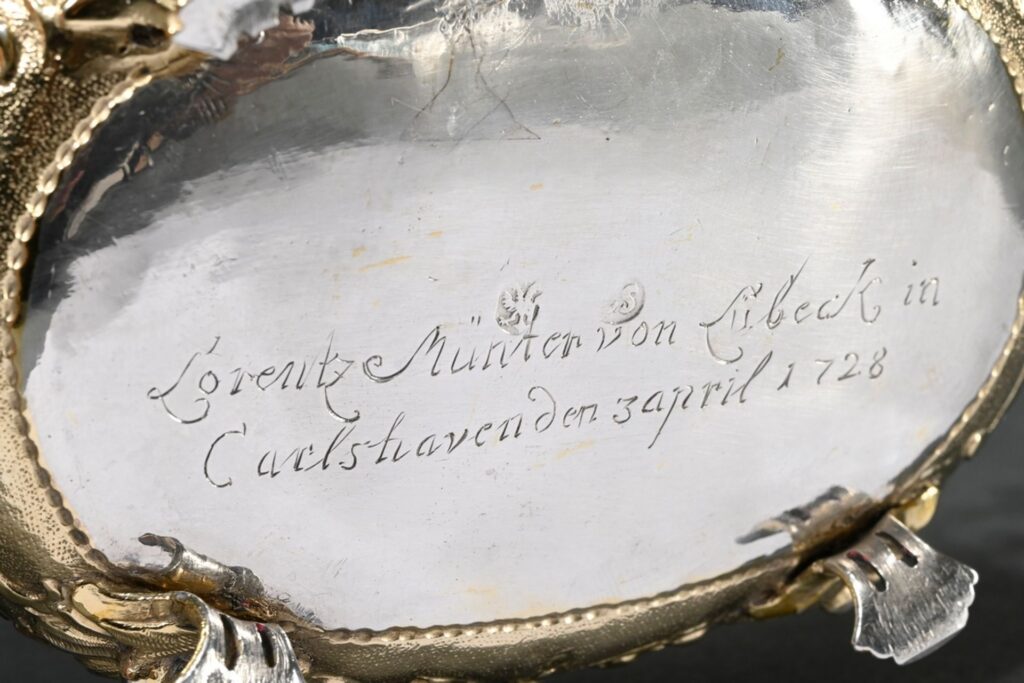 Lorentz Münter von Lübeck in
Carlshaven den 3 april 1728